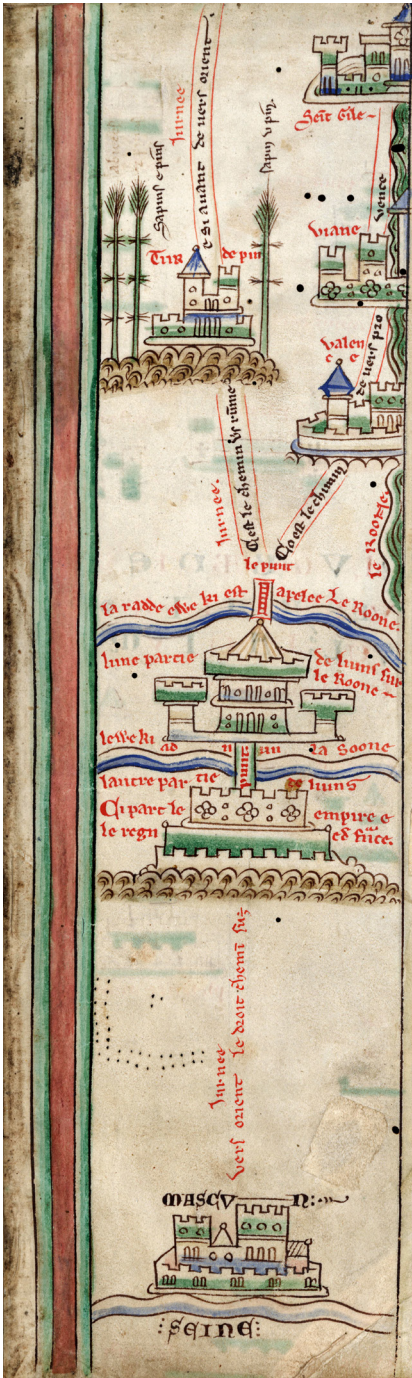 Jurnee
e si avant de vers orient
Sapins e pins
sapin u pin
Seit Gile
TUR de pin
viane
vence
valen
c e
de vers pro
Jurnee.
C'est le chemin vs rume
C'o est le chimin
le Roone
le punt
la radde ewe ki est apelee Le Roone.
lune partie de liuns sur
le Roone
lewe ki ad nun la Soone
punt
lautre partie de liuns
Ci part le empire e
le regn ed france
Jurnee
vers orient le droit chemi suz
MASCVN:
:SEINE: